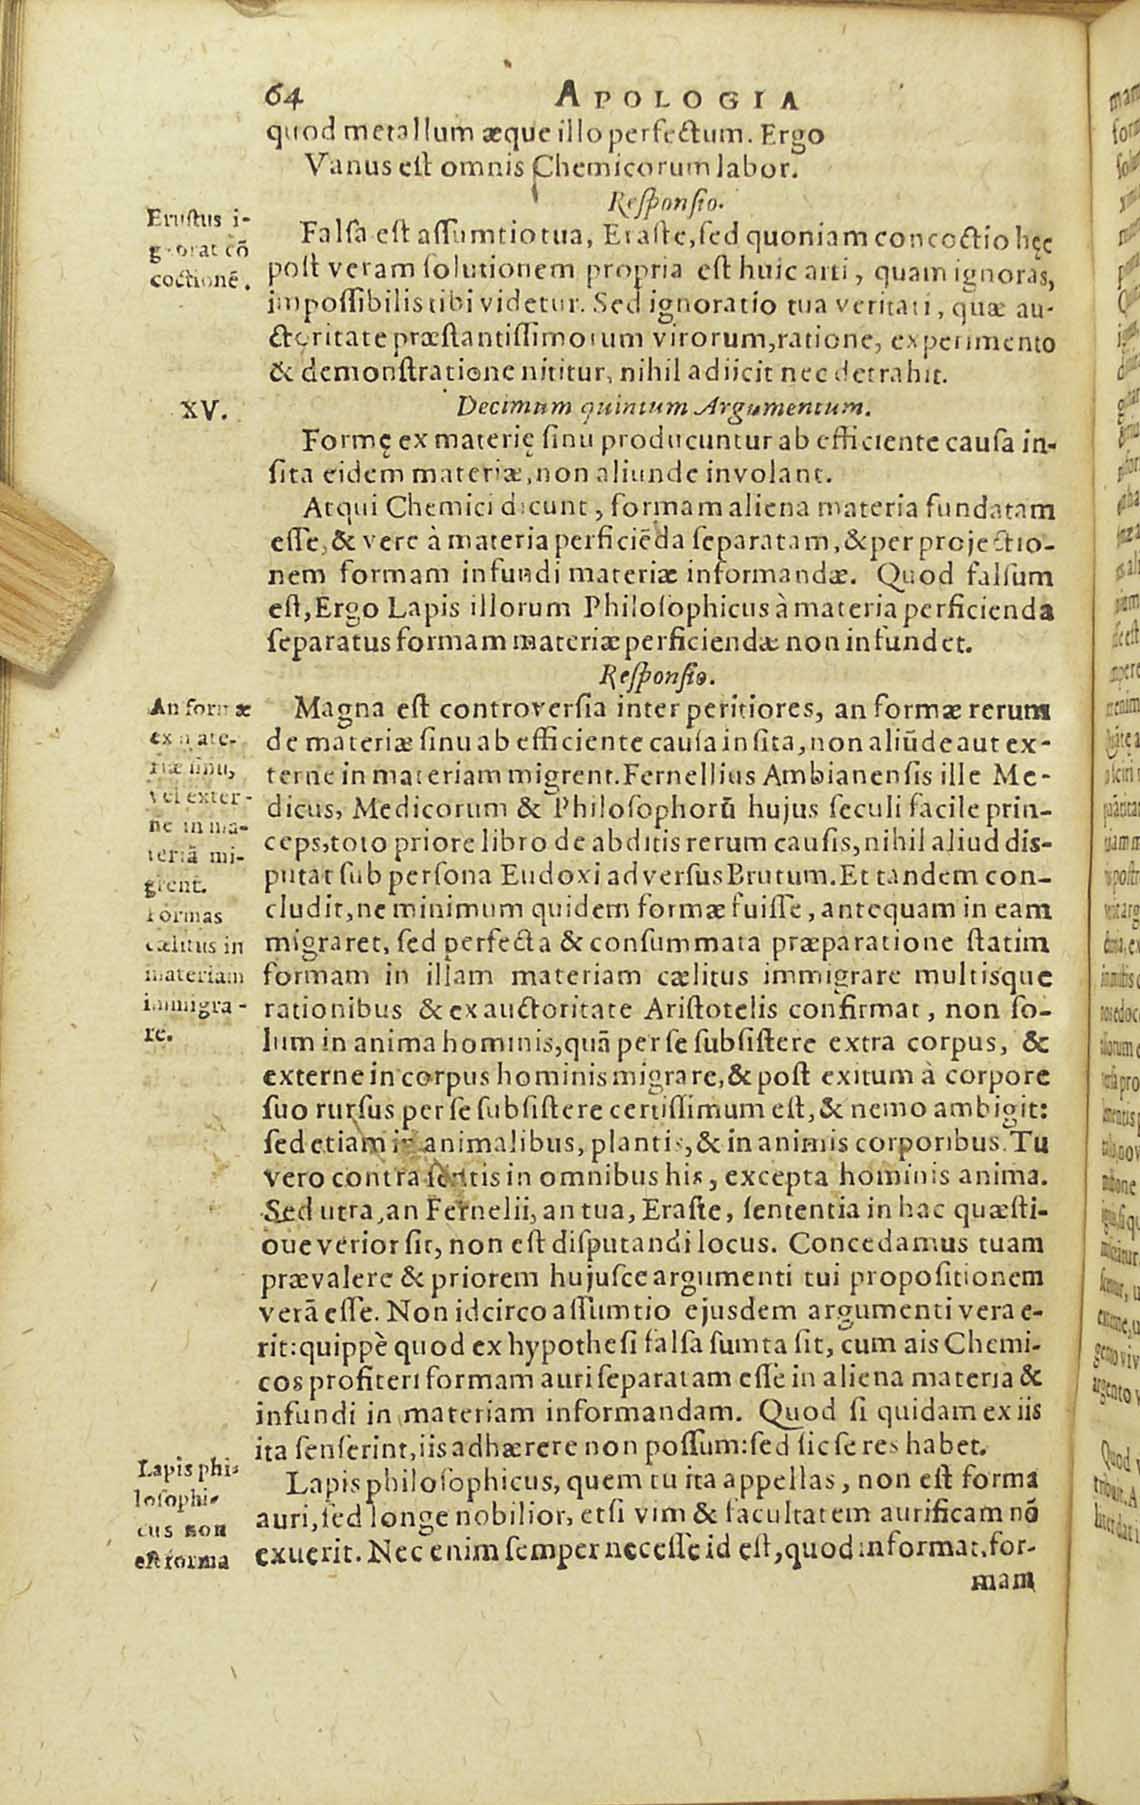 64 APOLOGIA
quod metallum æque illo perfectum. Ergo
Vanus est omnis Chemicorum labor.
Responsio.
Erastus i-
gnorat cõ
coctionẽ.
Falsa est assumtio tua, Eraste, sed quoniam concoctio hęc
post veram solutionem propria est huic arti, quam ignoras,
impossibilis tibi videtur. Sed ignoratio tua veritati, quæ au-
ctoritate præstantissimorum virorum, ratione, experimento
& demonstratione nititur, nihil adiicit nec detrahit.
XV.
Decimum quintum Argumentum.
Formę ex materię sinu producuntur ab efficiente causa in-
sita eidem materiæ, non aliunde involant.
Atqui Chemici dicunt, formam aliena materia fundatam
esse, & vere à materia perficiẽda separatam, & per projectio-
nem formam infundi materiæ informandæ. Quod falsum
est, Ergo Lapis illorum Philosophicus à materia perficienda
separatus formam materiæ perficiendæ non infundet.
Responsio.
An formæ
ex mate-
riæ sinu,
vel exter-
ne in ma-
teriã mi-
grent.
Formas
cælitus in
materiam
immigra-
re.
Magna est controversia inter peritiores, an formæ rerum
de materiæ sinu ab efficiente causa insita, non aliũde aut ex-
terne in materiam migrent. Fernellius Ambianensis ille Me-
dicus, Medicorum & Philosophorũ hujus seculi facile prin-
ceps, toto priore libro de abditis rerum causis, nihil aliud dis-
putat sub persona Eudoxi adversus Brutum. Et tandem con-
cludit, ne minimum quidem formæ fuisse, antequam in eam
migraret, sed perfecta & consummata præparatione statim
formam in illam materiam cælitus immigrare multisque
rationibus & ex auctoritate Aristotelis confirmat, non so-
lum in anima hominis, quã per se subsistere extra corpus, &
externe in corpus hominis migrare, & post exitum à corpore
suo rursus per se subsistere certissimum est, & nemo ambigit:
sed etiam in animalibus, plantis, & inanimis corporibus. Tu
vero contra sentis in omnibus his, excepta hominis anima.
Sed utra, an Fernelii, an tua, Eraste, sententia in hac quæsti-
oue verior sit, non est disputandi locus. Concedamus tuam
prævalere & priorem hujusce argumenti tui propositionem
verã esse. Non idcirco assumtio ejusdem argumenti vera e-
rit: quippè quod ex hypothesi falsa sumta sit, cum ais Chemi-
cos profiteri formam auri separatam esse in aliena materia &
infundi in materiam informandam. Quod si quidam ex iis
ita senserint, iis adhærere non possum: sed sic se res habet.
Lapis phi-
losophi-
cus non
est forma
Lapis philosophicus, quem tu ita appellas, non est forma
auri, sed longe nobilior, etsi vim & facultatem aurificam nõ
exuerit. Nec enim semper necesse id est, quod informat, for-
mam